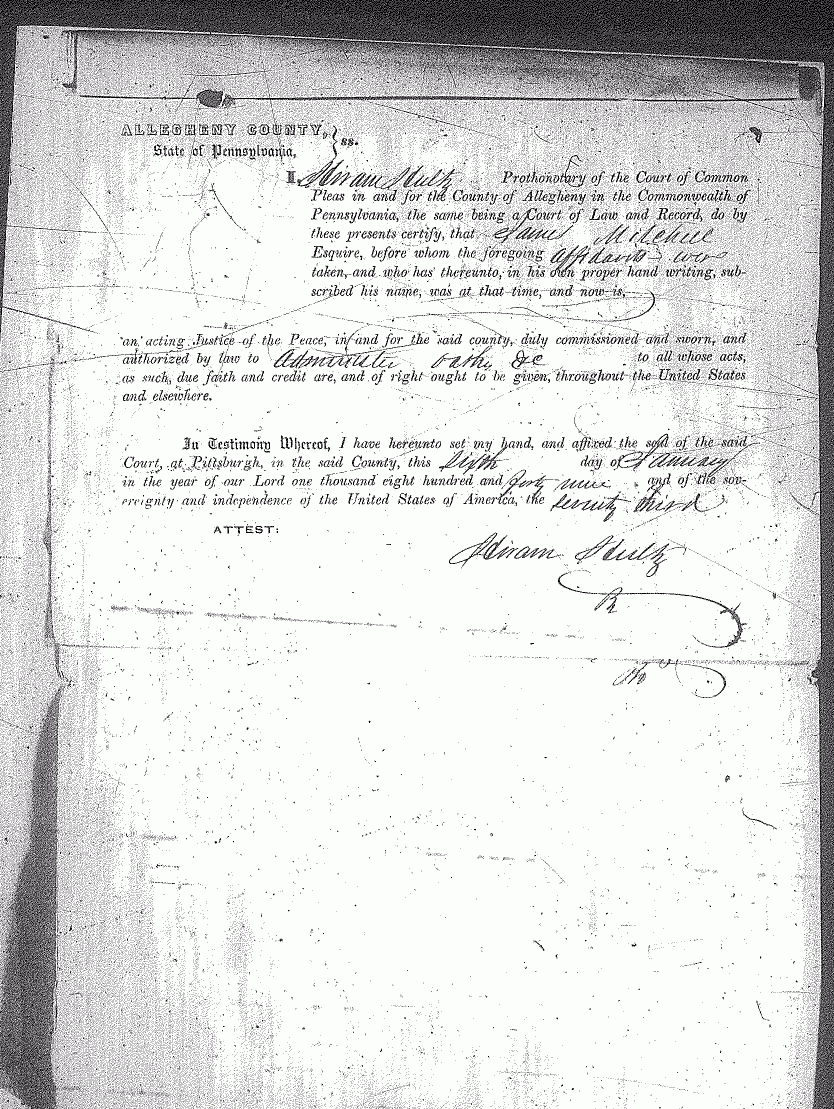 ALLEGHENY COUNTY, } ss.
State of Pennsylvania,
I, Hiram Hultz Prothonotary of the Court of Common
Pleas in and for the County of Allegheny in the Commonwealth of
Pennsylvania, the same being a Court of Law and Record, do by
these presents certify, that Mitchell
Esquire, before whom the foregoing affidavits were
taken, and who has thereunto, in his own proper hand writing, sub-
scribed his name, was at that time, and now is,
an acting Justice of the Peace, in and for the said county, duly commissioned and sworn, and
authorized by law to Administer oaths &c to all whose acts,
as such, due faith and credit are, and of right ought to be given, throughout the United States
and elsewhere.
In Testimony Whereof, I have hereunto set my hand, and affixed the seal of the said
Court, at Pittsburgh, in the said County, this fifth day of January
in the year of our Lord one thousand eight hundred and forty nine and of the sov-
ereignty and independence of the United States of America, the seventy third
ATTEST:
Hiram Hultz